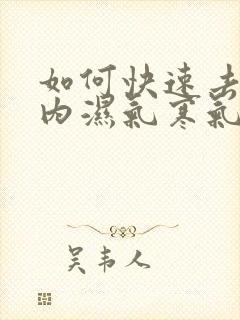 如何快速去
内濕氣寒氣
吴韦人